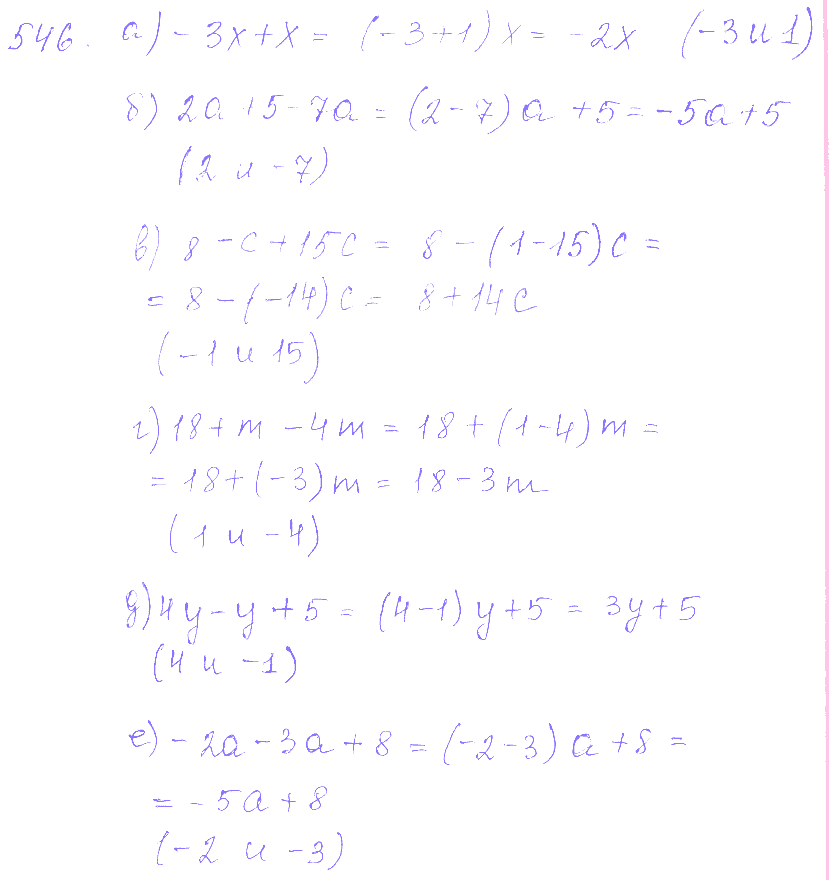 546. а) - 3x + x = (-3+1) x = -2x (-3 и 1)
б) 2a + 5 - 7a = (2-7) a + 5 = -5a + 5
(2 и -7)
в) 8 - c + 15c = 8 - (1-15) c =
= 8 - (-14) c = 8 + 14c
(-1 и 15)
г) 18 + m - 4m = 18 + (1-4) m =
= 18 + (-3) m = 18 - 3m
(1 и -4)
д) 4y - y + 5 = (4-1) y + 5 = 3y + 5
(4 и -1)
е) - 2a - 3a + 8 = (-2-3) a + 8 =
= - 5a + 8
(-2 и -3)